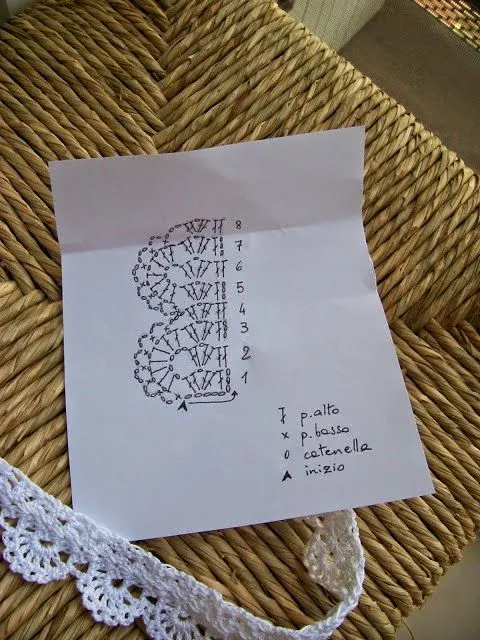 8
7
6
5
4
3
2
1
p. alto
x p. basso
o catenella
inizio